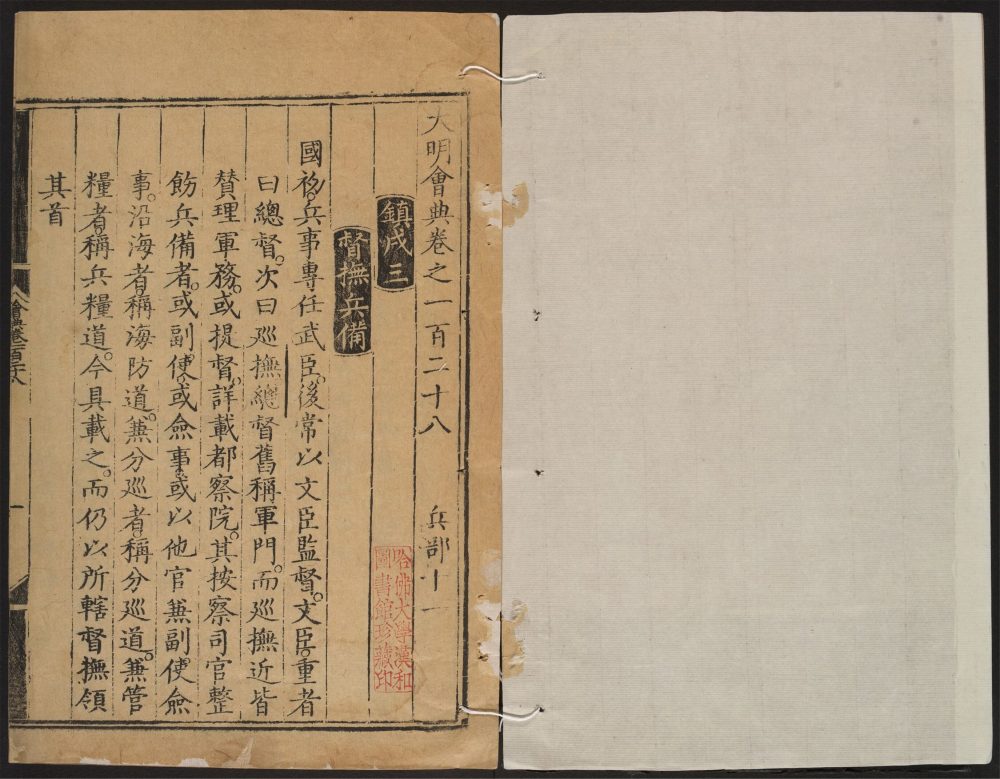 大明會典卷之一百二十八　兵部十一
鎮戍三
督撫兵備
國初。兵事專任武臣。後常以文臣監督。文臣。重者
曰總督。次曰巡撫總督舊稱軍門。而巡撫近皆
賛理軍務。或提督。詳載都察院。其按察司官整
飭兵備者。或副使。或僉事。或以他官兼副使僉
事。沿海者。稱海防道。兼分巡者。稱分巡道。兼管
糧者。稱兵糧道。今具載之。而仍以所轄督撫領
其首
哈佛大學漢和
圖書館珍藏印
會典卷一百二十八
一